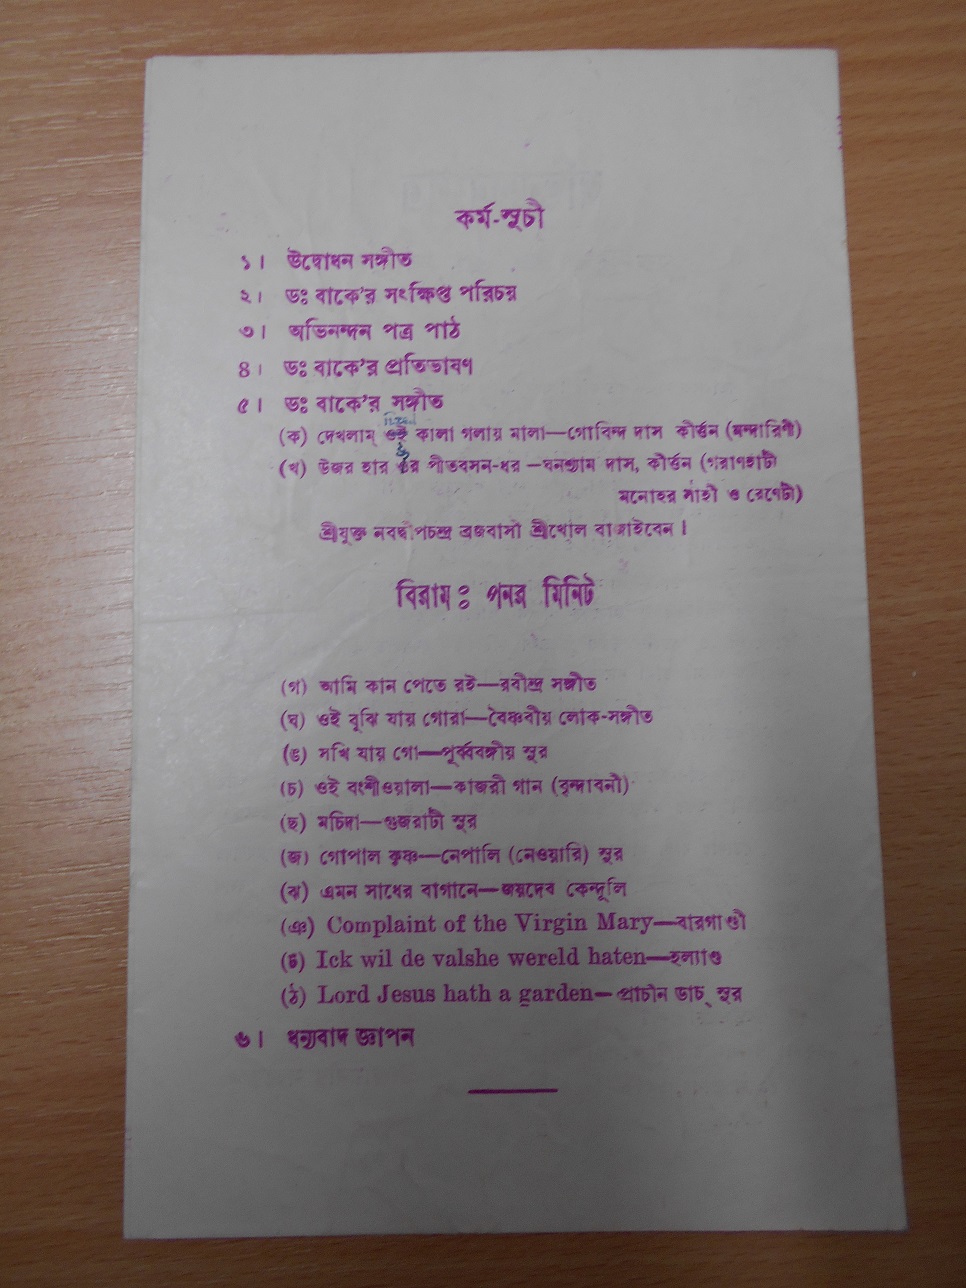 কর্ম-সূচী
১। উদ্বোধন সঙ্গীত
২। ডঃ বাকে'র সংক্ষিপ্ত পরিচয়
৩। অভিনন্দন পত্র পাঠ
৪। ডঃ বাকে'র প্রতিভাষণ
৫। ডঃ বাকে'র সঙ্গীত
(ক) দেখলাম্ ওই কালা গলায় মালা—গোবিন্দ দাস কীর্ত্তন (মন্দারিণী)
(খ) উজর হার উর পীতবসন-ধর—ঘনশ্যাম দাস, কীর্ত্তন (গরাণহাটী
মনোহর সাহী ও রেণেটী)
শ্রীযুক্ত নবদ্বীপচন্দ্র ব্রজবাসী শ্রীখোল বাজাইবেন।
বিরাম : পনর মিনিট
(গ) আমি কান পেতে রই—রবীন্দ্র সঙ্গীত
(ঘ) ওই বুঝি যায় গোরা—বৈষ্ণবীয় লোক-সঙ্গীত
(ঙ) সখি যায় গো—পূর্ব্ববঙ্গীয় সুর
(চ) ওই বংশীওয়ালা—কাজরী গান (বৃন্দাবনী)
(ছ) মচিদা—গুজরাটী সুর
(জ) গোপাল কৃষ্ণ—নেপালি (নেওয়ারি) সুর
(ঝ) এমন সাধের বাগানে—জয়দেব কেন্দুলি
(ঞ) Complaint of the Virgin Mary—বারগাণ্ডী
(ট) Ick wil de valshe wereld haten—হল্যাণ্ড
(ঠ) Lord Jesus hath a garden—প্রাচীন ডাচ্ সুর
৬। ধন্যবাদ জ্ঞাপন